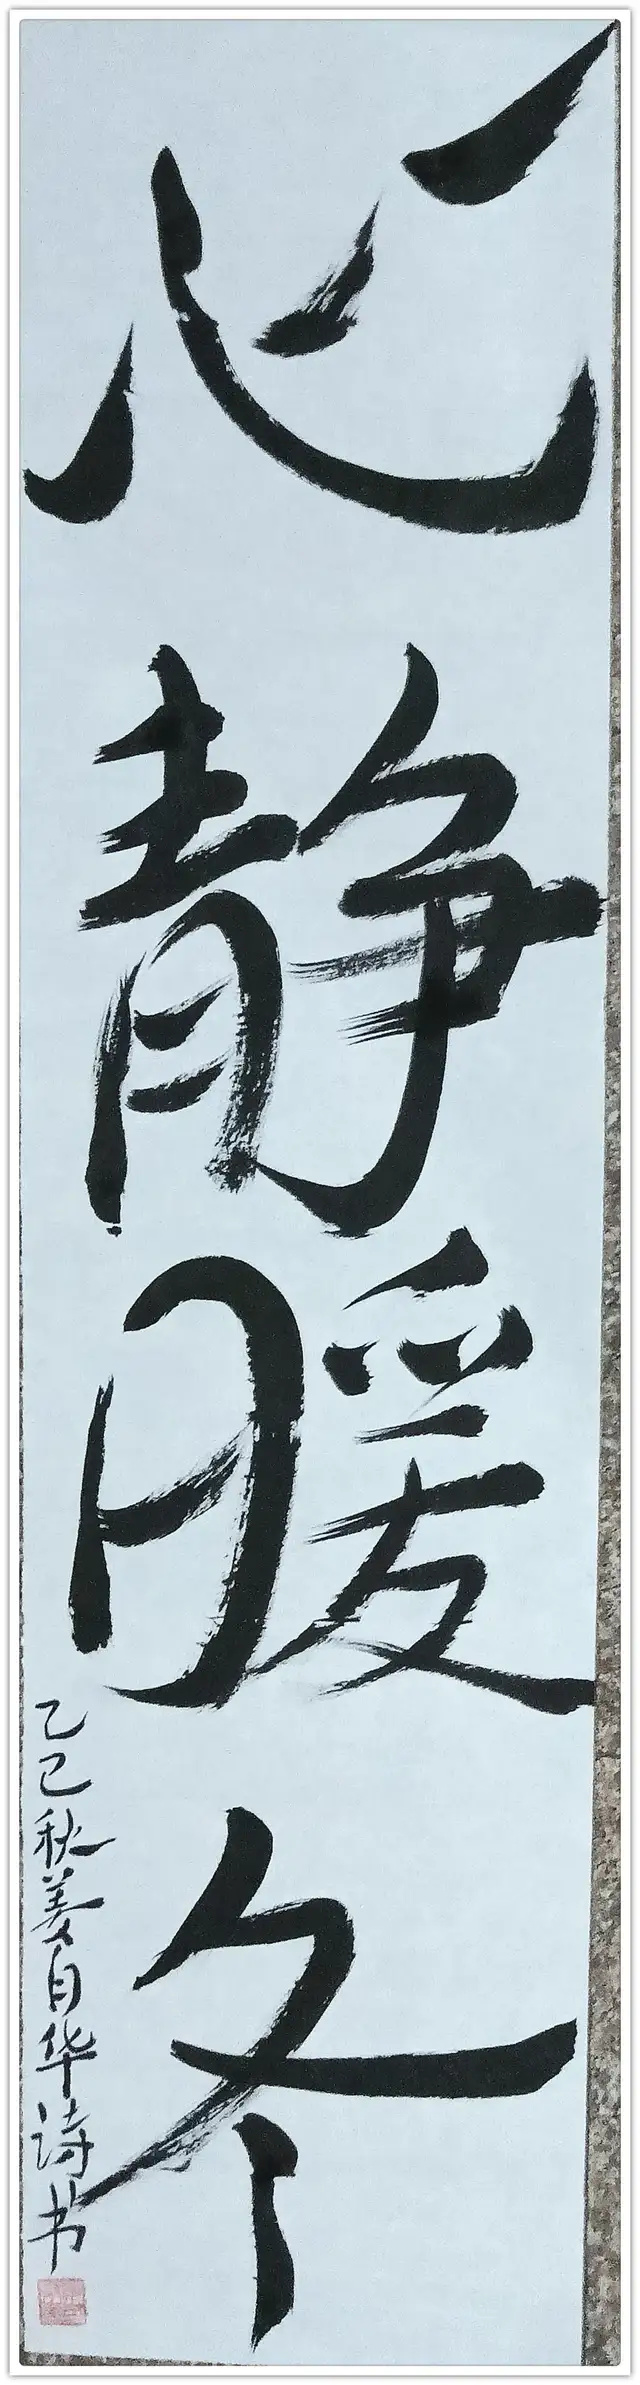 心静暖冬
乙巳秋姜自华诗书